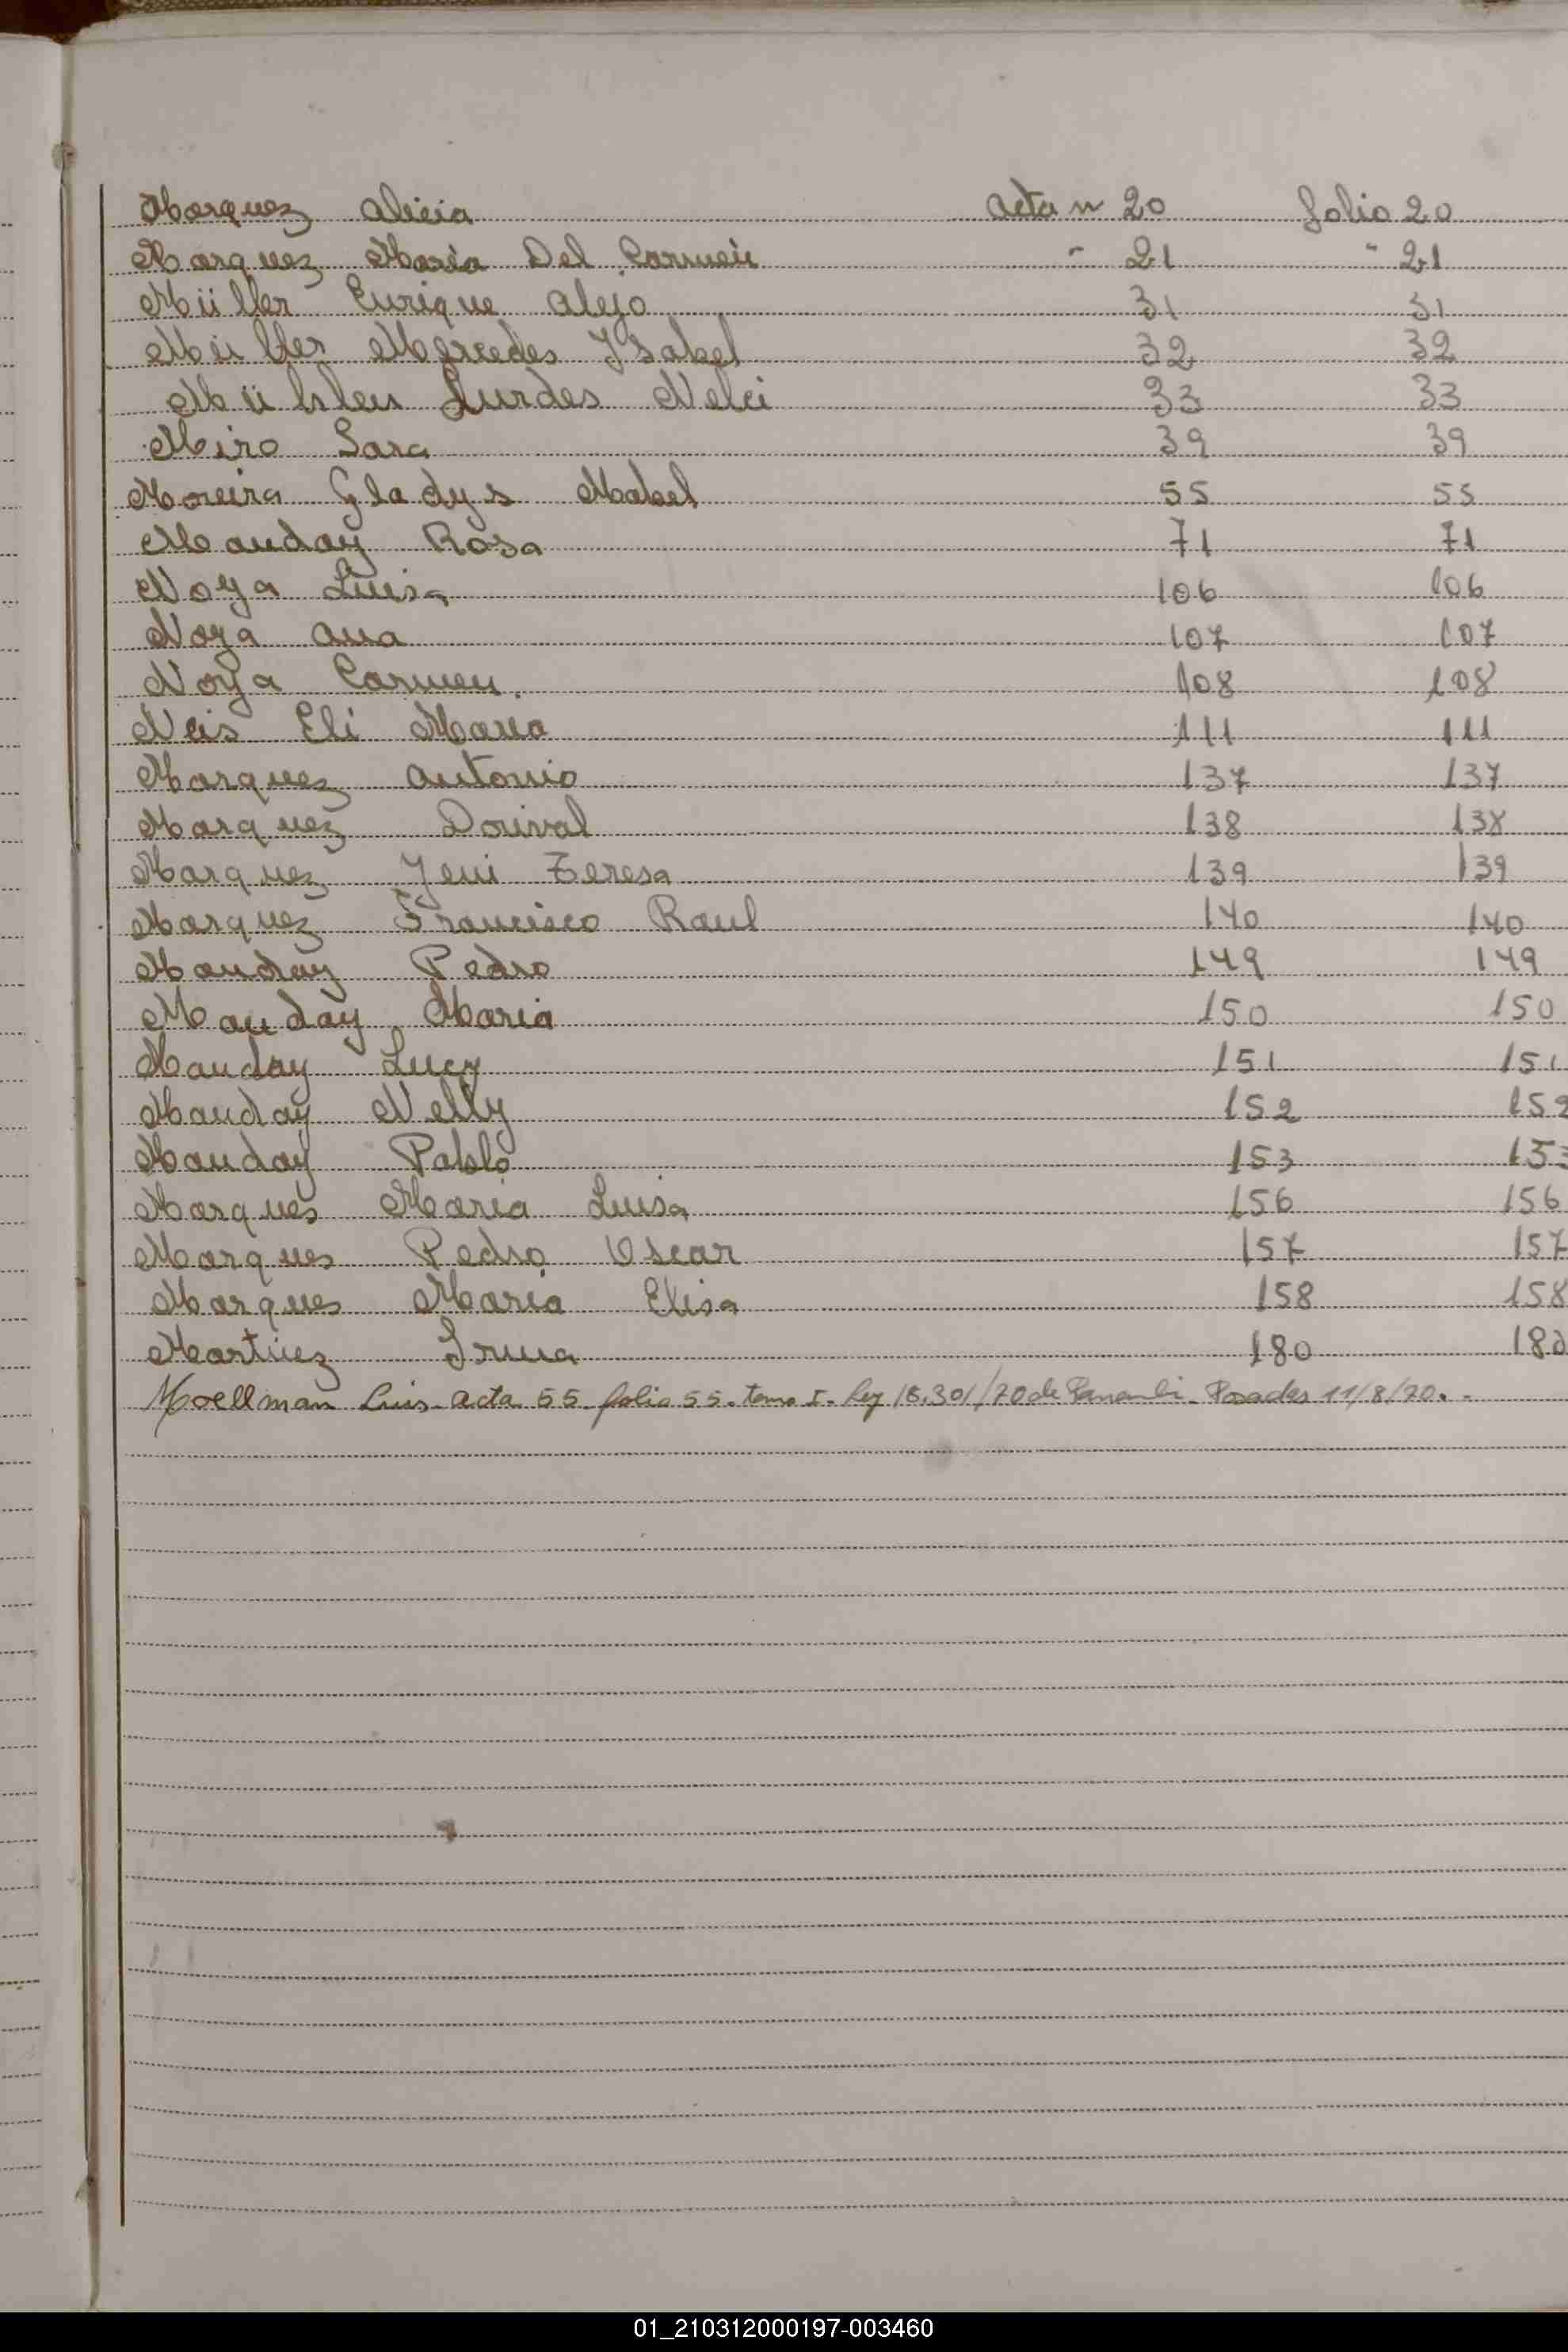 Marquez Alicia Acta n 20 folio 20
Marquez Maria Del Carmen " 21 " 21
Müller Enrique Alejo 31 31
Müller Mercedes Ysabel 32 32
Mühlen Lurdes Nelci 33 33
Miro Sara 39 39
Moreira Gladys Mabel 55 55
Mauday Rosa 71 71
Noya Luisa 106 106
Noya Ana 107 107
Noya Carmen. 108 108
Neis Eli Maria 111 111
Marquez Antonio 137 137
Marquez Dorival 138 138
Marquez Jeni Teresa 139 139
Marquez Francisco Raul 140 140
Mauday Pedro 149 149
Mauday Maria 150 150
Mauday Lucy 151 151
Mauday Nelly 152 152
Mauday Pablo 153 153
Marques Maria Luisa 156 156
Marques Pedro Oscar 157 157
Marques Maria Elisa 158 158
Martinez Irma 180 180
Moellman Luis. acta 55. folio 55. tomo I. Ley 18.301/70 de Panambi. Posadas 11/8/70.-
01_210312000197-003460